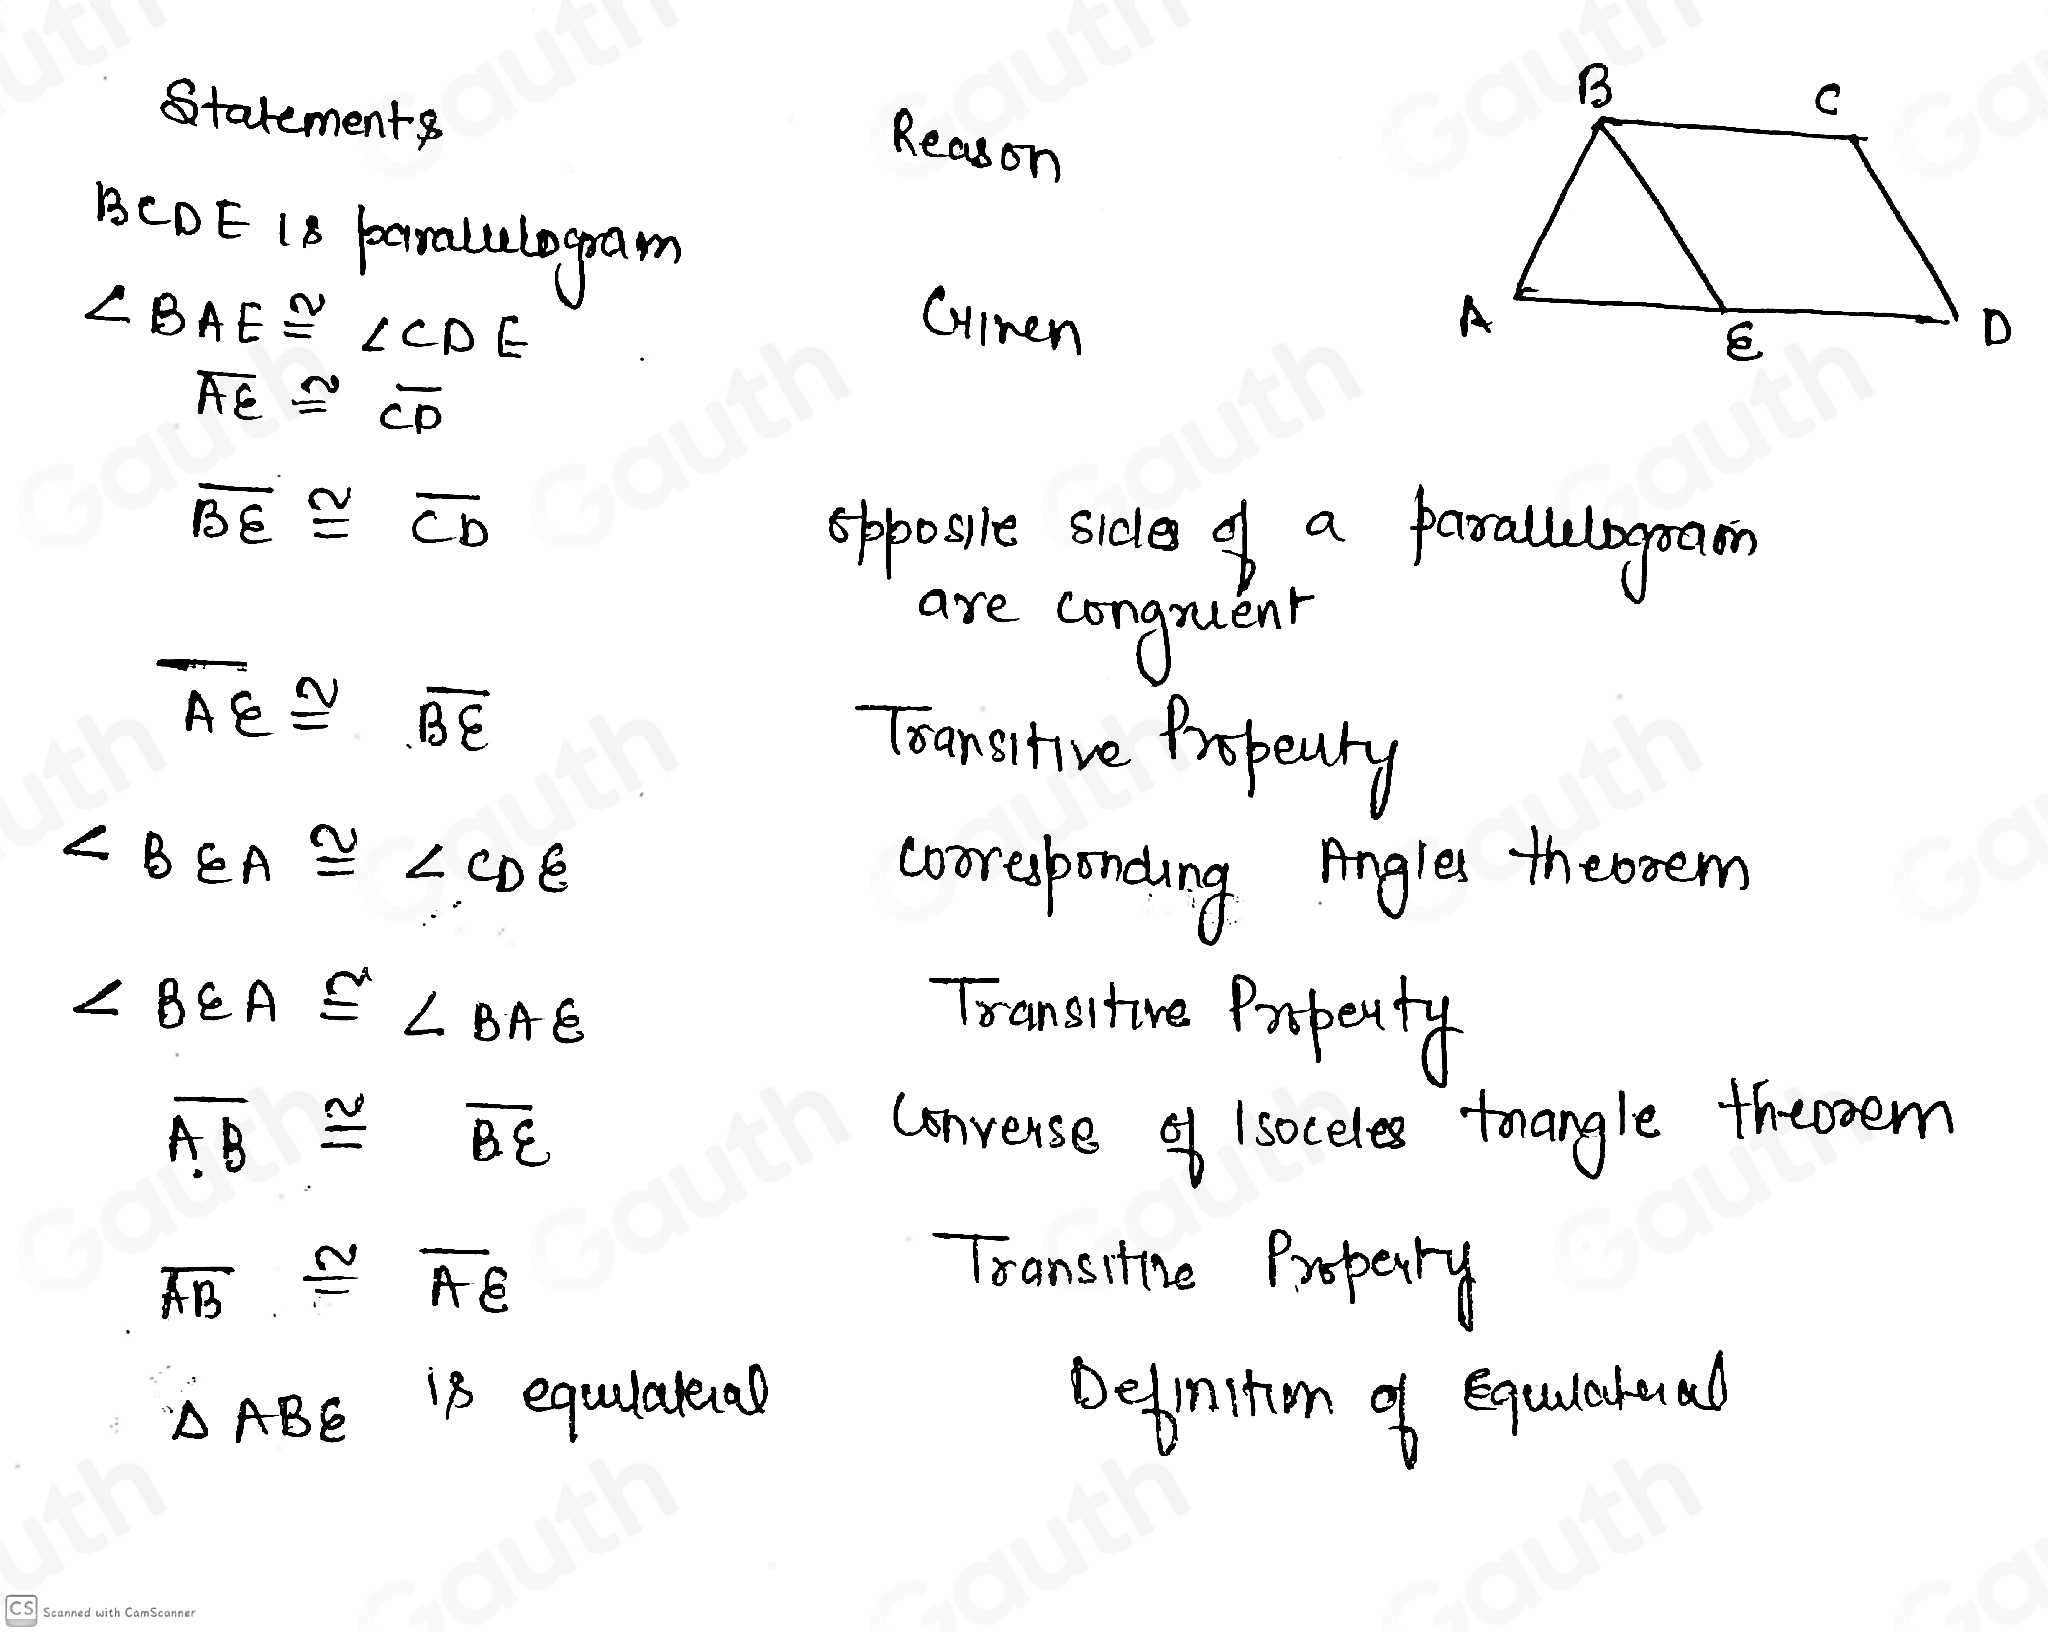 Statements Reason
BCDE is parallelogram
∠BAE ≅ ∠CDE Given
A̅E̅ ≅ C̅D̅
B̅E̅ ≅ C̅D̅ opposite sides of a parallelogram
are congruent
A̅E̅ ≅ B̅E̅ Transitive Property
∠BEA ≅ ∠CDE corresponding Angles theorem
∠BEA ≅ ∠BAE Transitive Property
A̅B̅ ≅ B̅E̅ Converse of Isoceles triangle theorem
A̅B̅ ≅ A̅E̅ Transitive Property
Δ ABE is equilateral Definition of Equilateral
B C
A E D
Gauth
CS Scanned with CamScanner